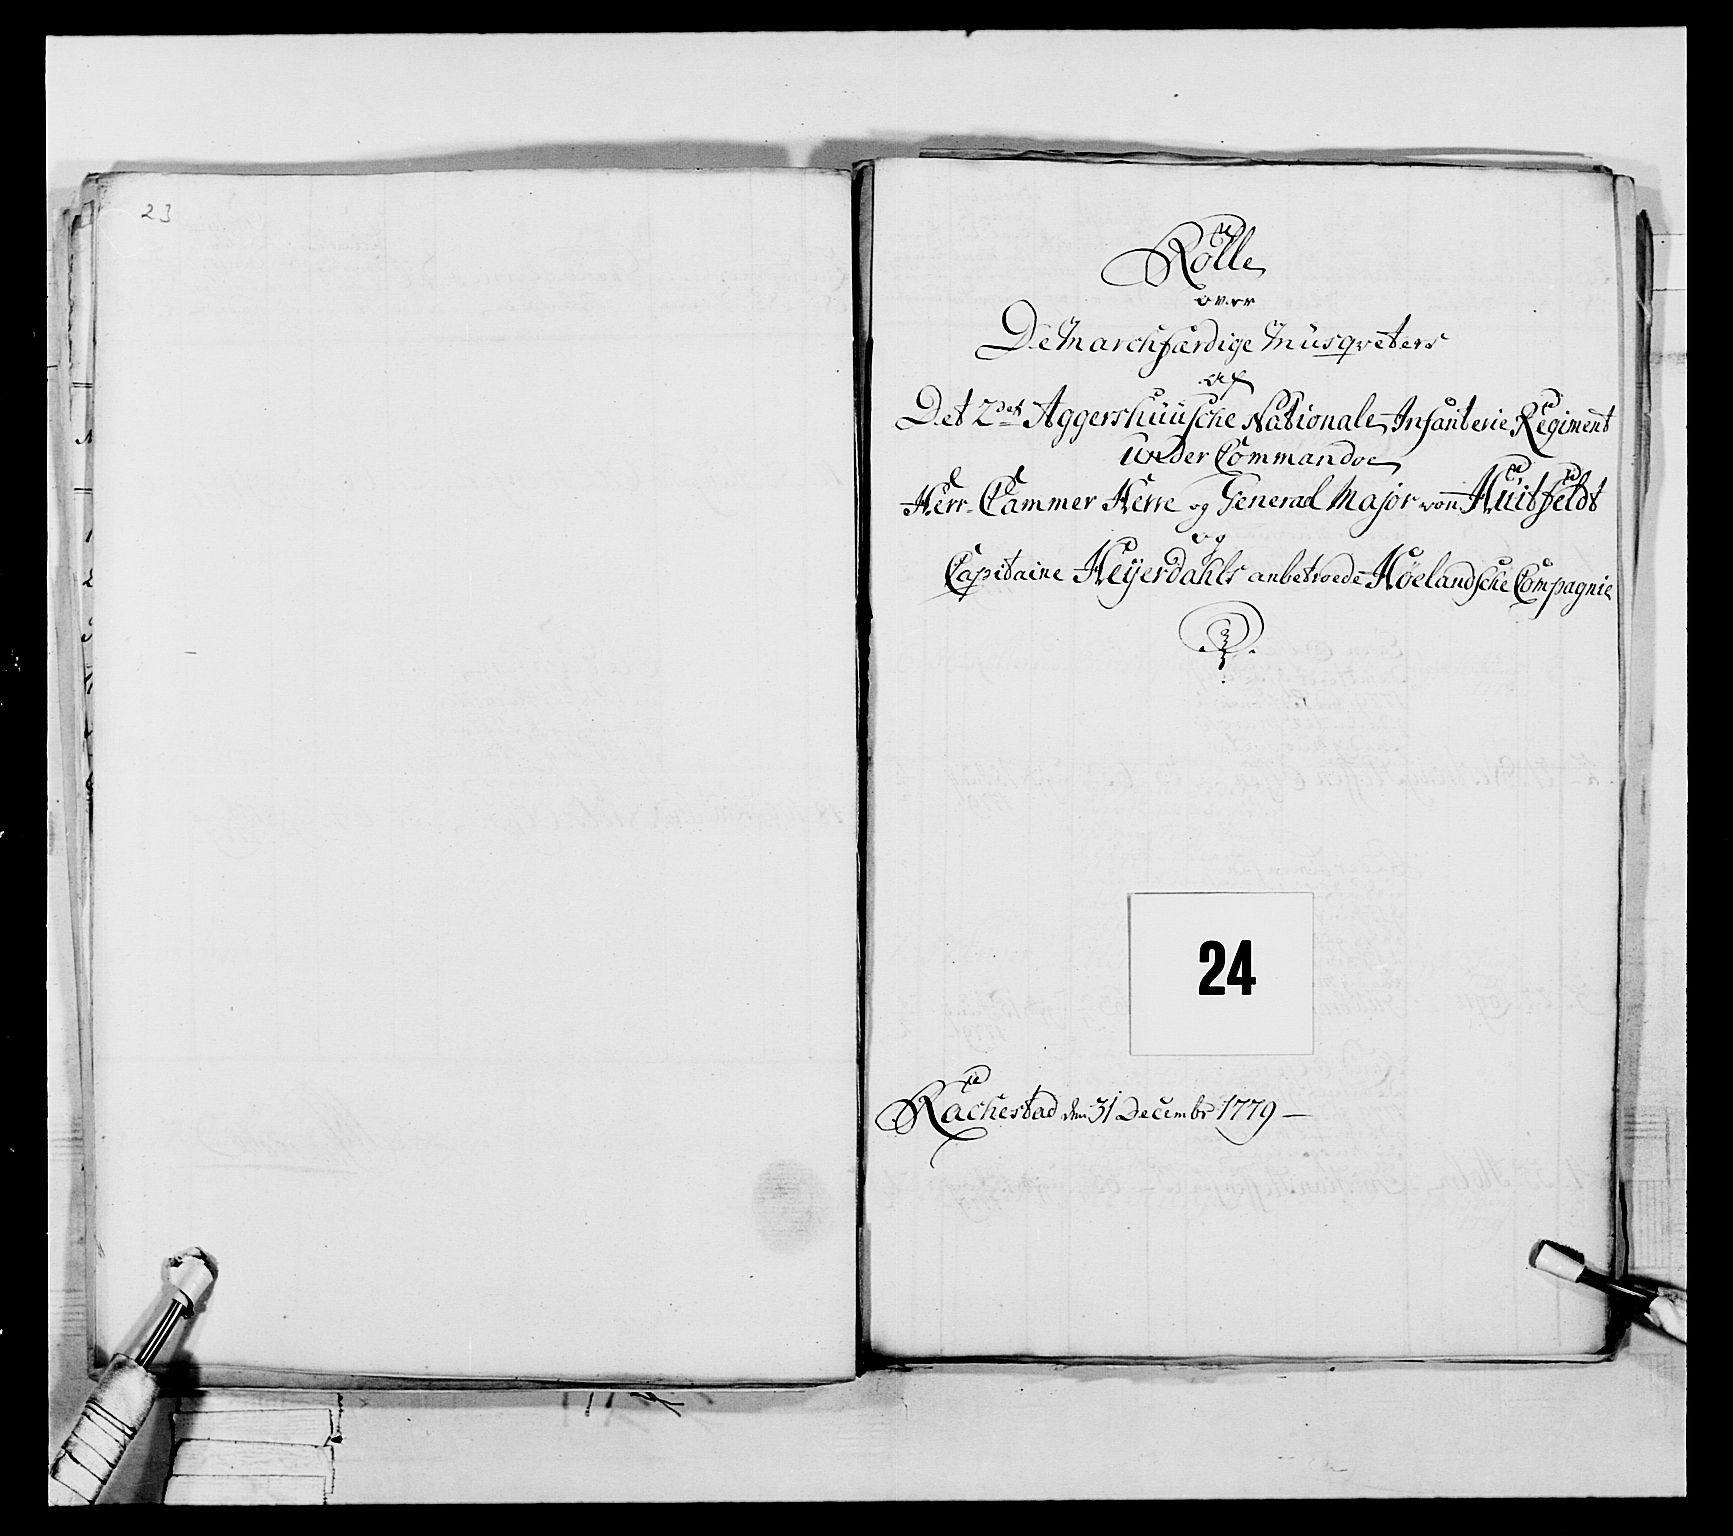 23
Rolle
over
De Marchfærdige Musqveters
af
Det 2det Aggershuusche Nationale Infanterie Regiment
Under Commandoe
Herr Cammer Herre og General Major von Huitfeldt
og
Capitaine Heyerdahls anbetroede Høelandsche Compagnie
24
Rachestad den 31 Decembr 1779 —